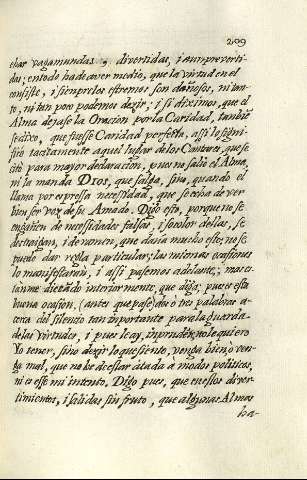 209
char vagamundas, divertidas, i aun perverti-
das; en todo ha de aver medio, que la virtud en el
consiste, i siempre los estremos son dañosos, ni tan-
to, ni tan poco podemos dezir; i si diximos, que el
Alma dexase la Oracion por la Caridad, tambien
se dixo, que fuesse Caridad perfetta, assi lo signi-
ficò tacitamente aquel lugar de los Cantares, que se
citò para mayor declaracion, pues no saliò el Alma,
ni la manda DIOS, que salga, sino, quando el
llama por expressa necesidad, que se echa de ver
bien ser voz de su Amado. Digo esto, porque no se
engañen de necesidades falsas, i so color dellas, se
destraigan, i derramen, que daria mucho esto; no se
puede dar regla particular; las mismas ocasiones
lo manifestaràn, i assi pasemos adelante; mas es-
tanme diciendo interiormente, que diga; pues esta
buena ocasion, (antes que pase) dos ò tres palabras a-
cerca del silencio tan importante para la guarda
de las virtudes, i pues le ay, in prudẽ, no le quiero
Yo tener, sino dezir lo que siento, venga bien, ò ven-
ga mal, que no he de estar atada à modos politicos,
ni es esse mi intento. Digo pues, que en estos diver-
timientos, i salidas sin fruto, que algunas Almas
ha-